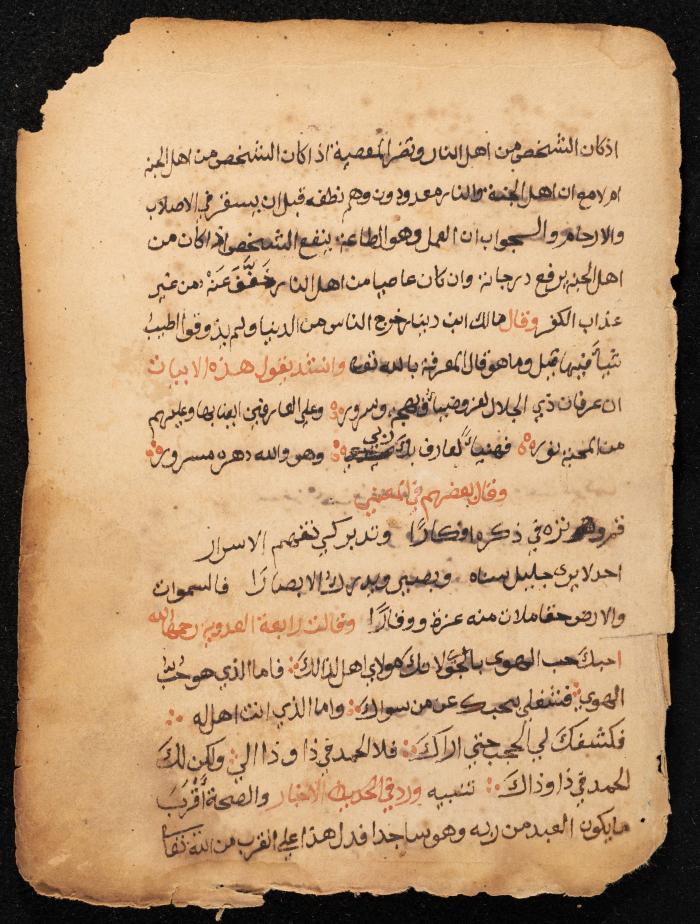 اذكان الشخص من اهل النار وتضر المعصية اذا كان الشخص من اهل الجنه
ام لا مع ان اهل الجنة والنار معدودون وهم نطفه قبل ان يستقر في الاصلاب
والارحام والجواب ان العمل وهو الطاعة ينفع الشخص اذ اكان من
اهل الجنه برفع درجاته وان كان عاصيا من اهل النار خفف عنه من غير
عذاب الكفر وقال مالك ابن دينار خرج الناس من الدنيا ولم يذوقوا اطيب
شيأ فيها قيل وما هو قال المعرفة بالله تعا وانشد يقول هذه الابيات
ان عرفان ذي الجلال لعز وضيياً وبهجه وسروره وعلى العارفين ايضا بها وعليهم
من المحبة نوره فهنياً لعارف بك ربي وهو والله دهره مسروره
وقال بعضهم في المعني
نزه في ذكره افكارًا وتدبر كي تفهم الاسرار
احد لا يرى جليل سناه وبصير ويدرك الابصارا فالسموات
والارض حقا ملات منه عزة ووقارًا وقالت رابعة العدويه رحمها الله
احبك حب الهوى مولاي اهل لذالك فاما الذي هو حب
الهوي فشغلي بحبك عن من سواك واما الذي انت اهل له
فكشفك لي الحجب حتي اراك فلا الحمد في ذا وذا لي ولكن لك
الحمد في ذا وذاك تنبيه ورد في الحديث الاخبار والصحة أقرب
ما يكون العبد من ربه وهو ساجدا فدل هذا علي القرب من الله تعا